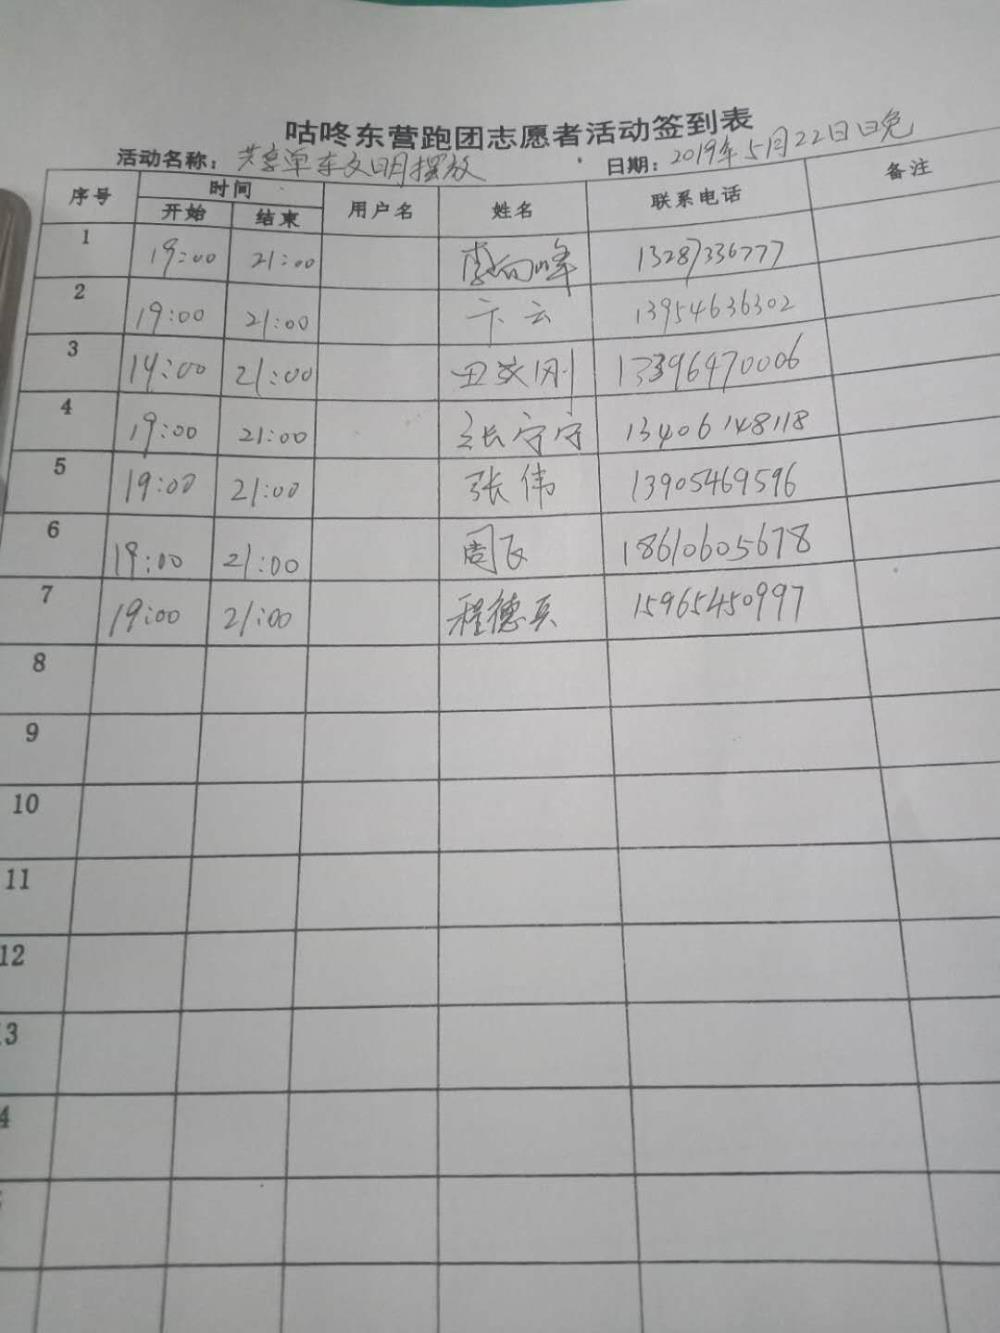 咕咚东营跑团志愿者活动签到表
活动名称：共享单车文明摆放 日期：2019年5月22日日晚
序号 时间 用户名 姓名 联系电话 备注
开始 结束
1 19:00 21:00 李向峰 13287336777
2 19:00 21:00 卞云 13954636302
3 19:00 21:00 刚 13396470006
4 19:00 21:00 张守守 13406148118
5 19:00 21:00 张伟 13905469596
6 19:00 21:00 周飞 18610605678
7 19:00 21:00 程德兵 15965450997
8
9
10
11
12
13
4